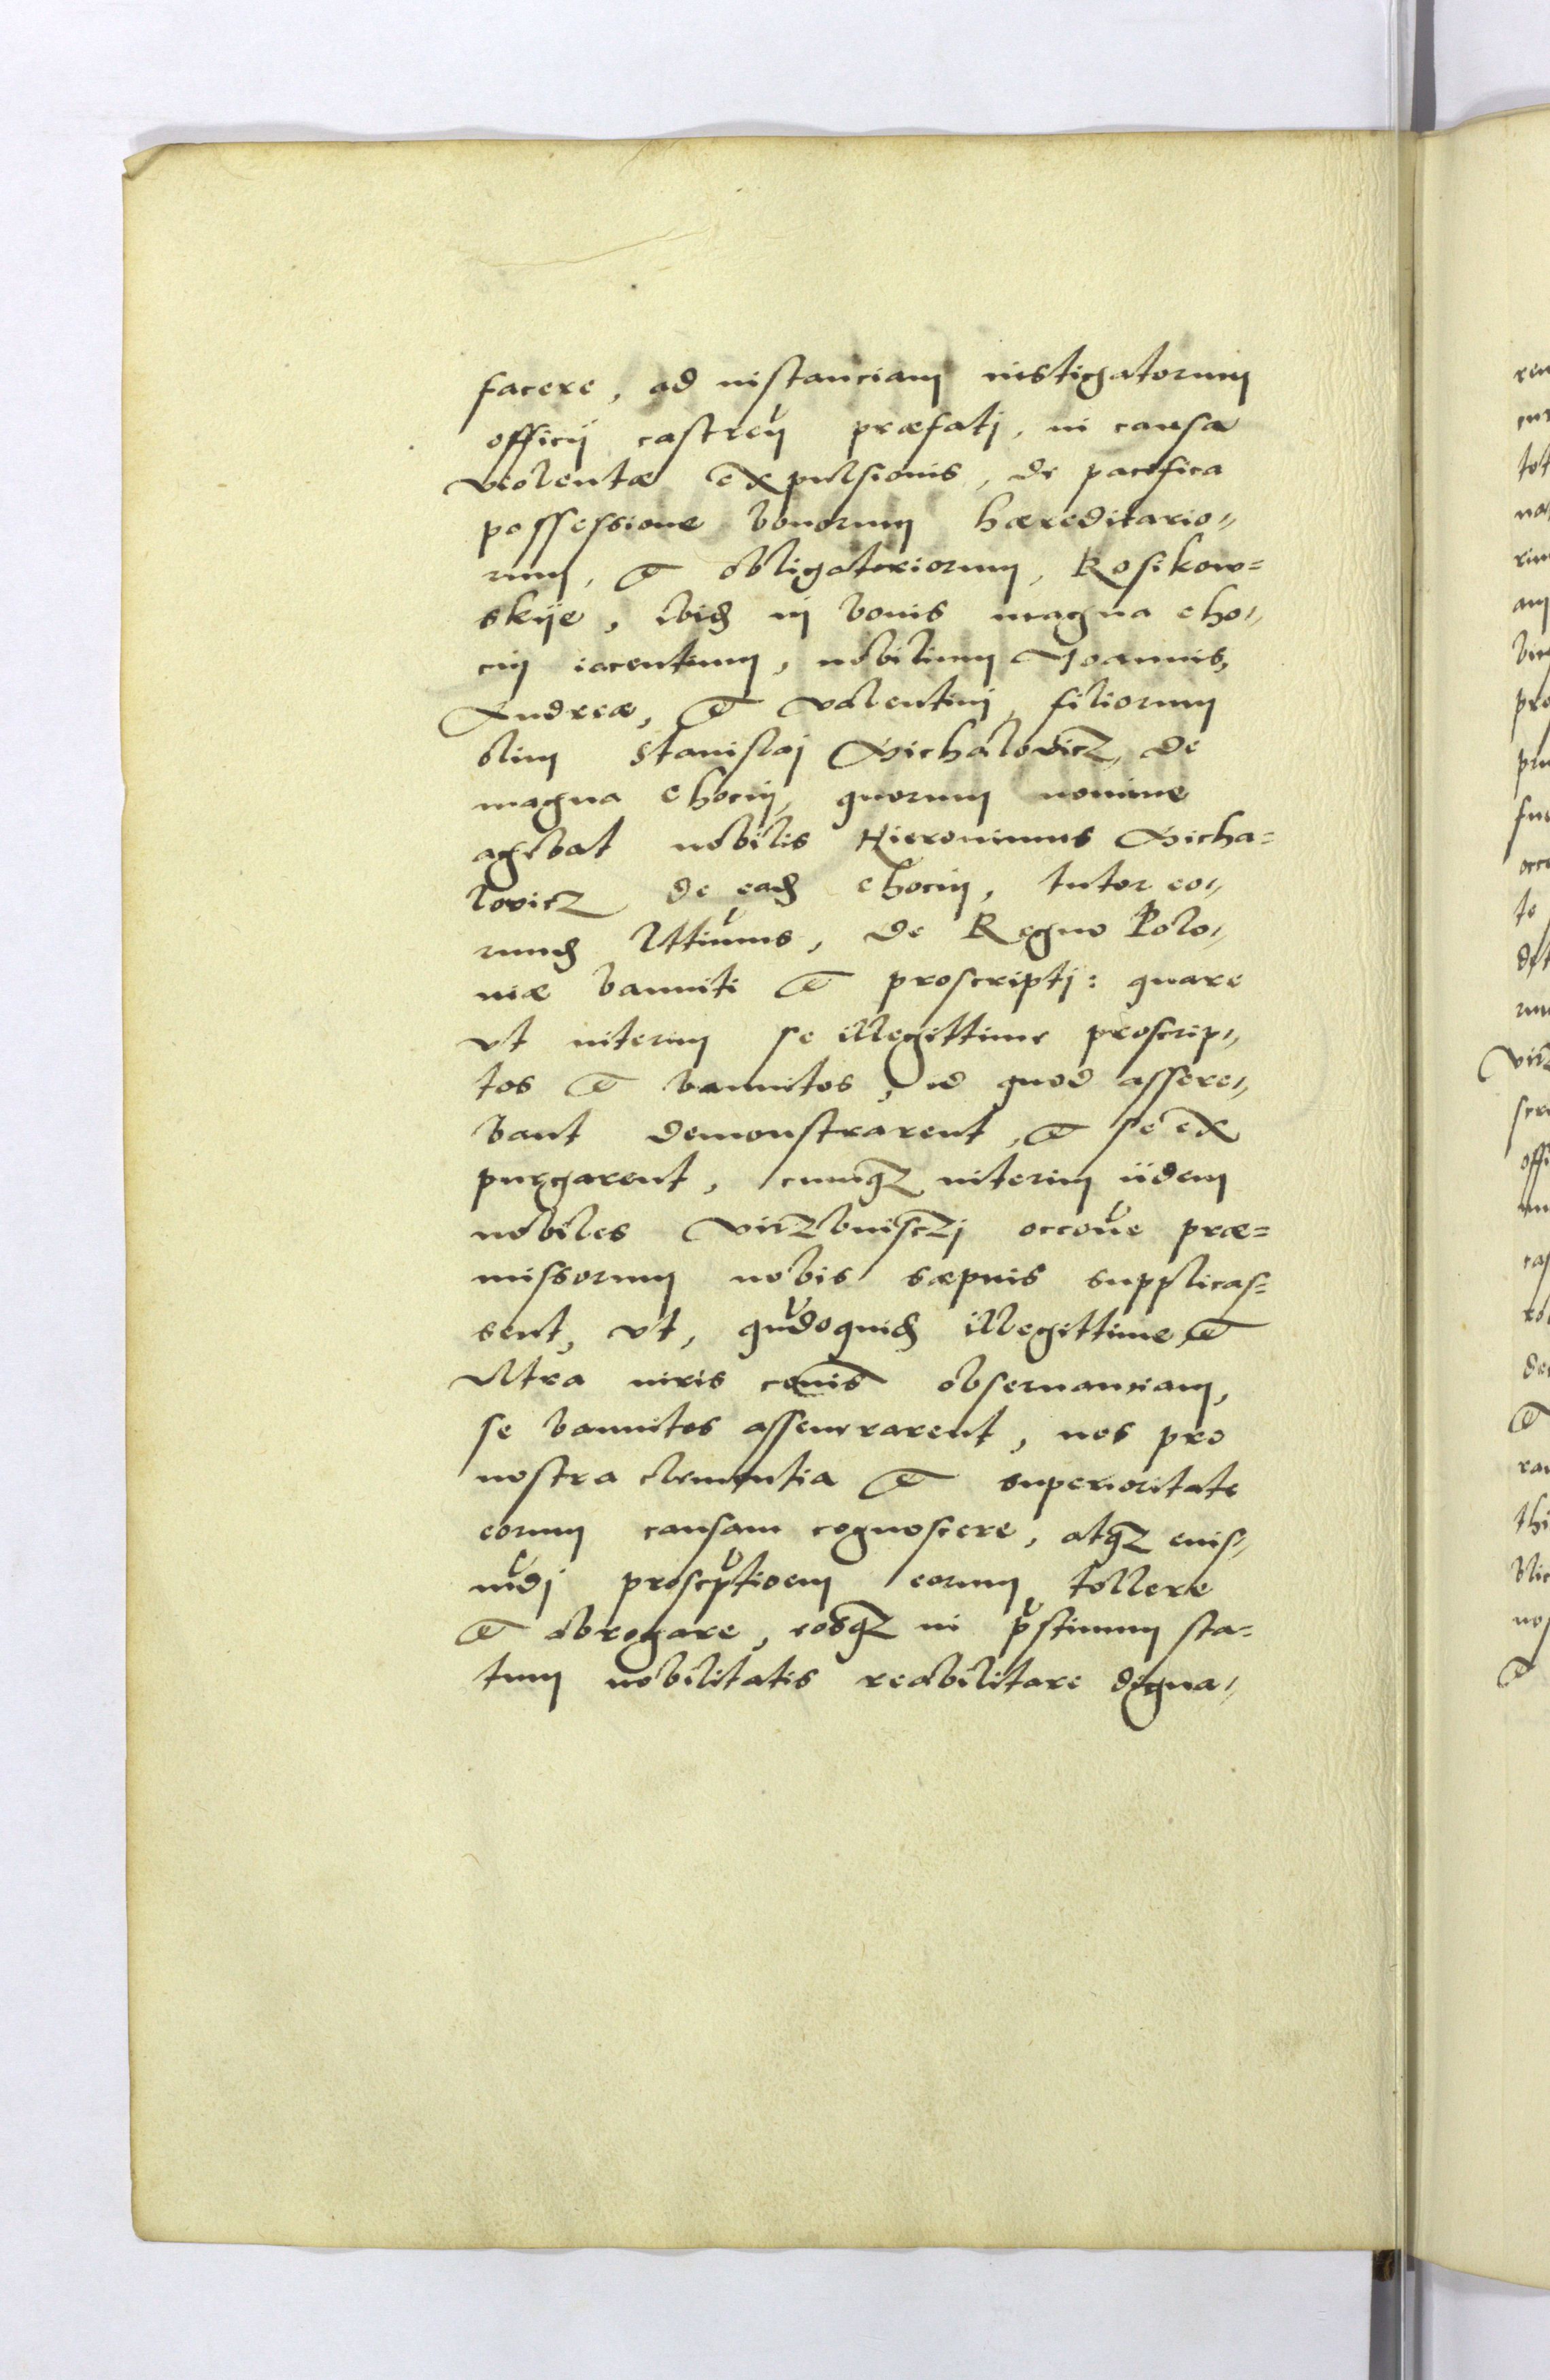 facere, ad instanciam instigatorum
officij castren̄ præfatj, in causa
violentæ expulsionis, de pacifica
possessione bonorum hæreditario„
rum, et obligatoriorum, Kosikow=
skije, ibid in bonis magna cho„
cin iacentium, nobilium Joannis,
Andreæ, et Valentini, filiorum
olim Stanislaj Michalovicz, de
magna Chocin, quorum nomine
agebat nobilis Hieronimus Micha=
lovicz de ead Chocin, tutor eo„
rund lttimus, de Regno Polo„
niæ banniti et proscriptj: quare
vt interim se illegittime proscrip„
tos et bannitos, id quod assere„
bant demonstrarent, et se ex
purgarent, cumqz interim iidem
nobiles Virzbiniſczj occone præ=
missorum nobis sæpius supplicas=
sent, vt, qudoquid illegittime et
vltra iuris cōnis obseruanciam,
se bannitos asseuerarent, nos pro
nostra clementia et superioritate
eorum causam cognoscere, atqz euis„
modj proscptioem eorum tollere
et abrogare, eosqz in pstinum sta=
tum nobilitatis reabilitare digna„